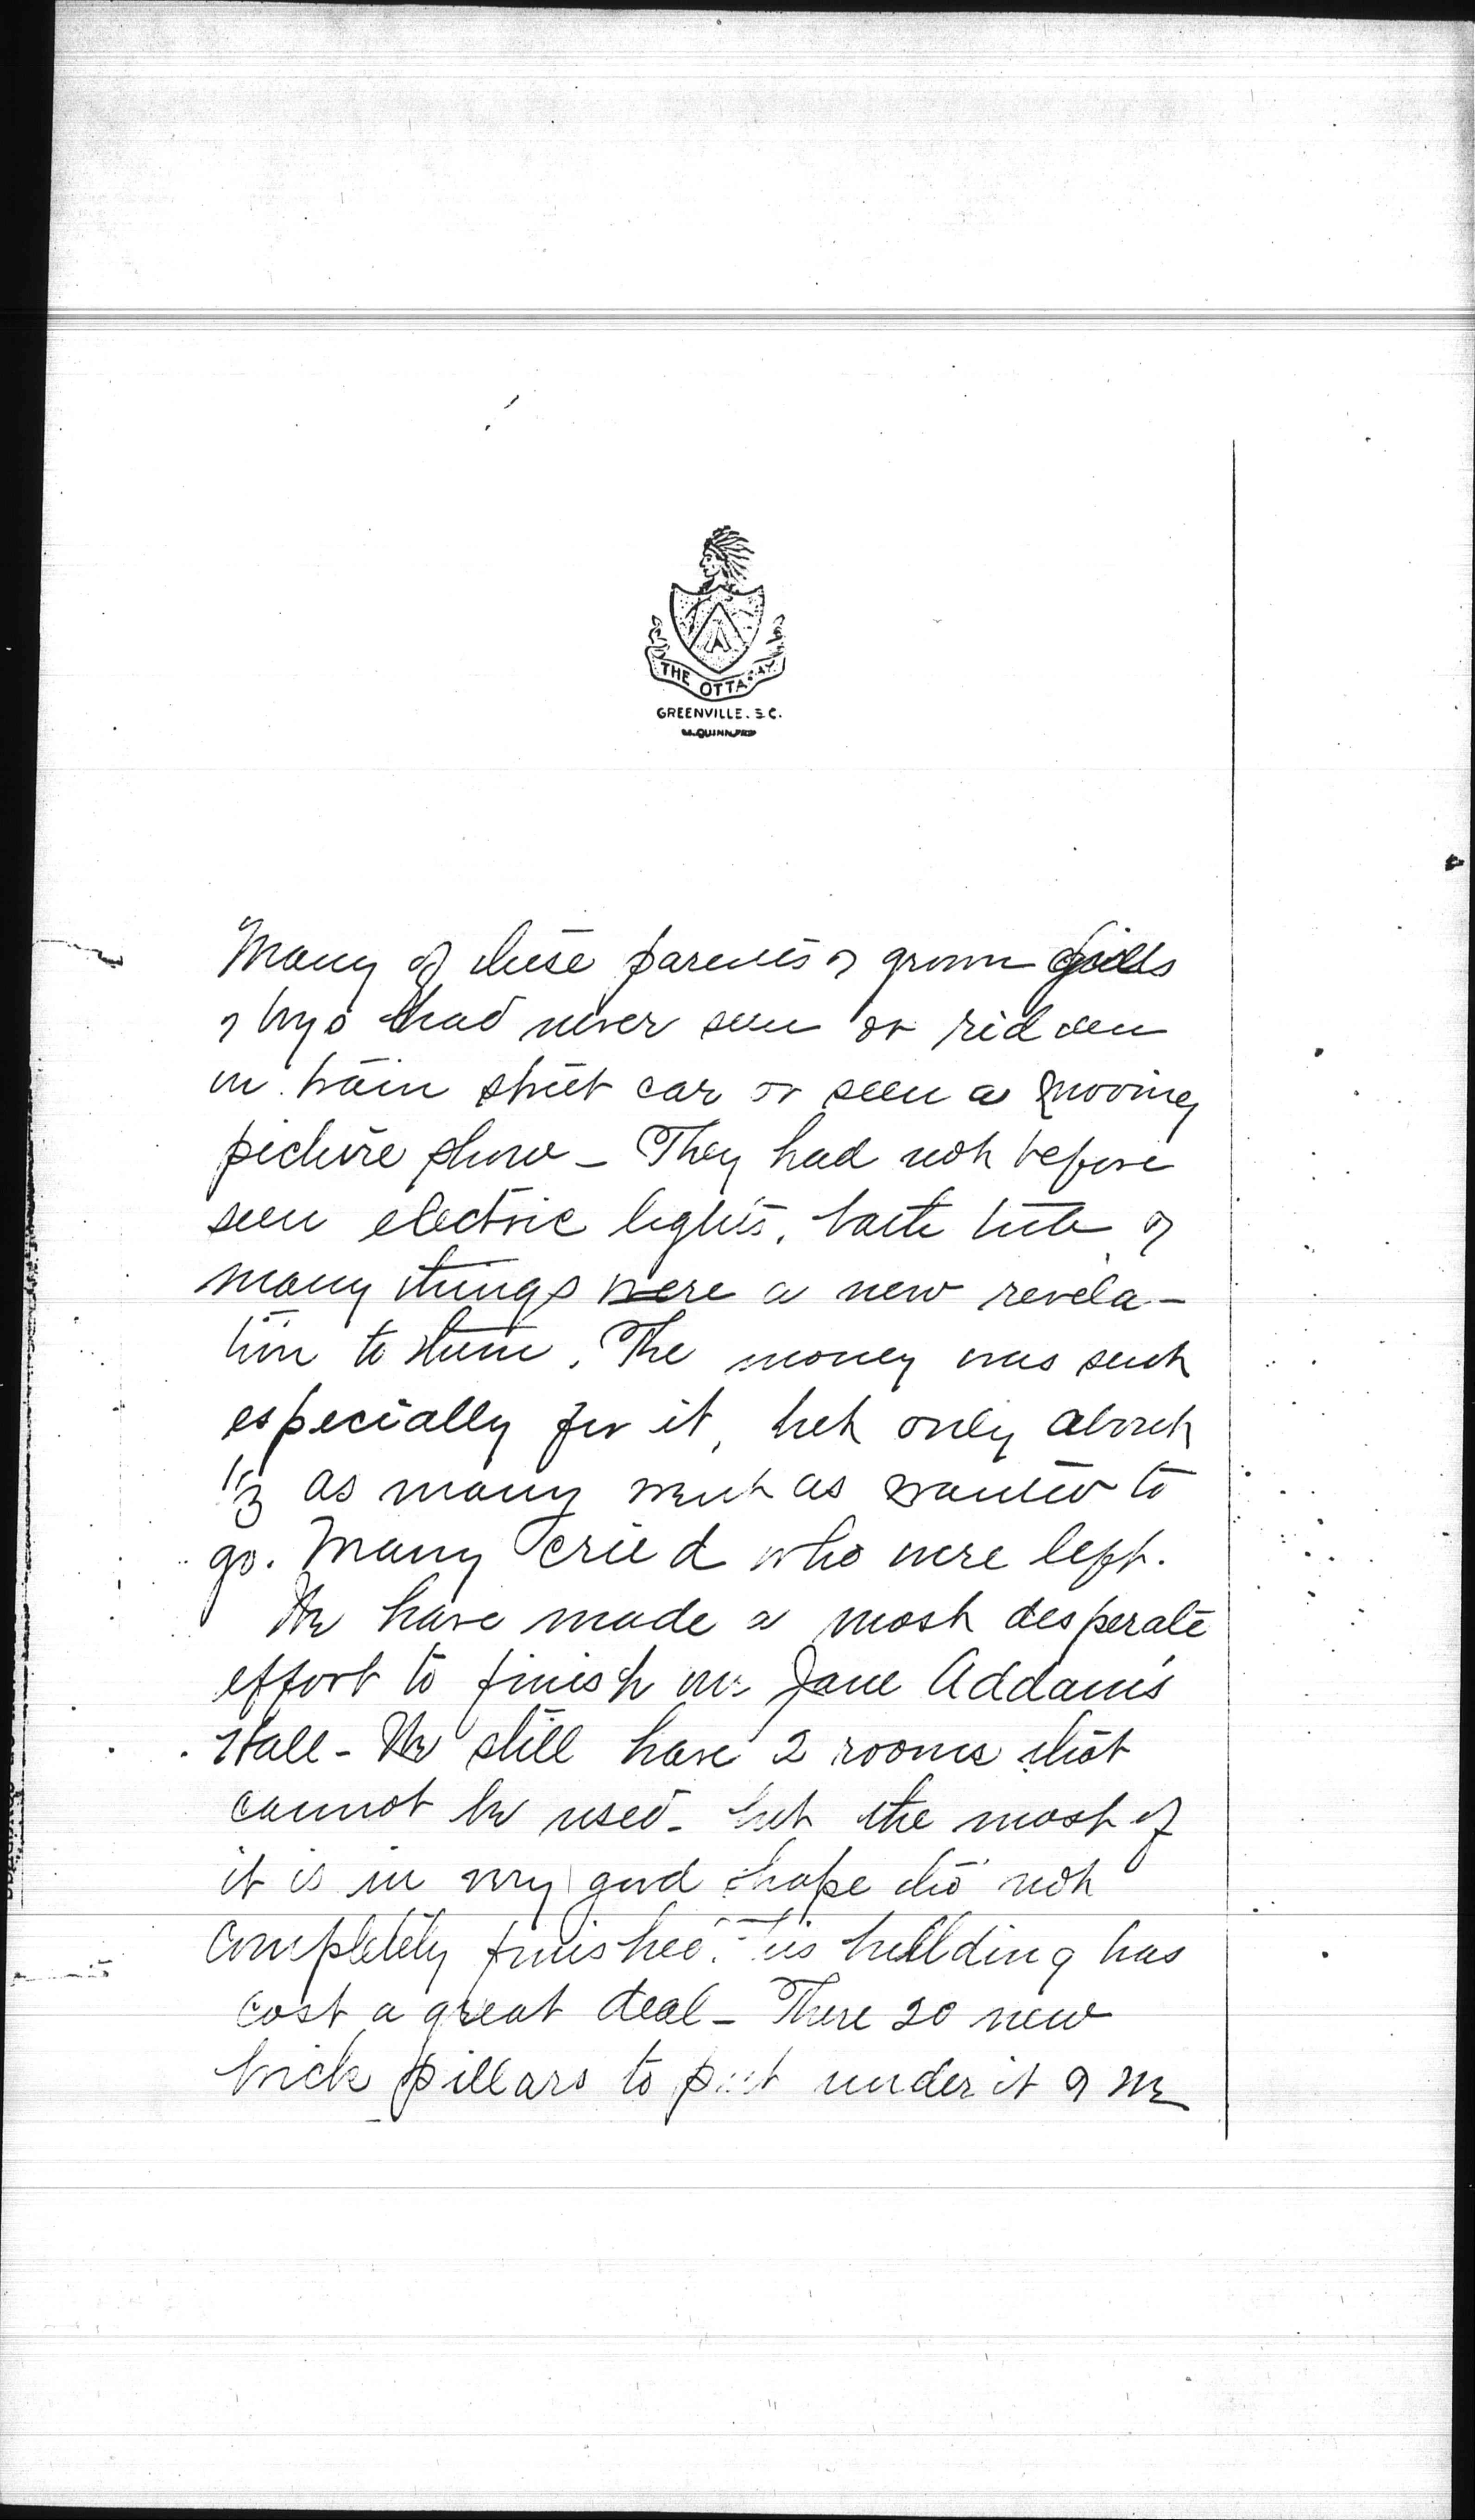 THE OTTARAY
GREENVILLE. S.C.
Many of these parents & grown girls
& boys had never seen or ridden
in train street car or seen a moving
picture show - They had not before
seen electric lights, bath tub &
many things were a new revela-
tion to them. The money was sent
especially for it, but only about
1/3 as many went as wanted to
go. Many cried who were left.
We have made a most desperate
effort to finish our Jane Addams
Hall - We still have 2 rooms that
cannot be used - but the most of
it is in very good shape tho' not
completely finished. This building has
cost a great deal - There 20 new
brick pillars to put under it & we